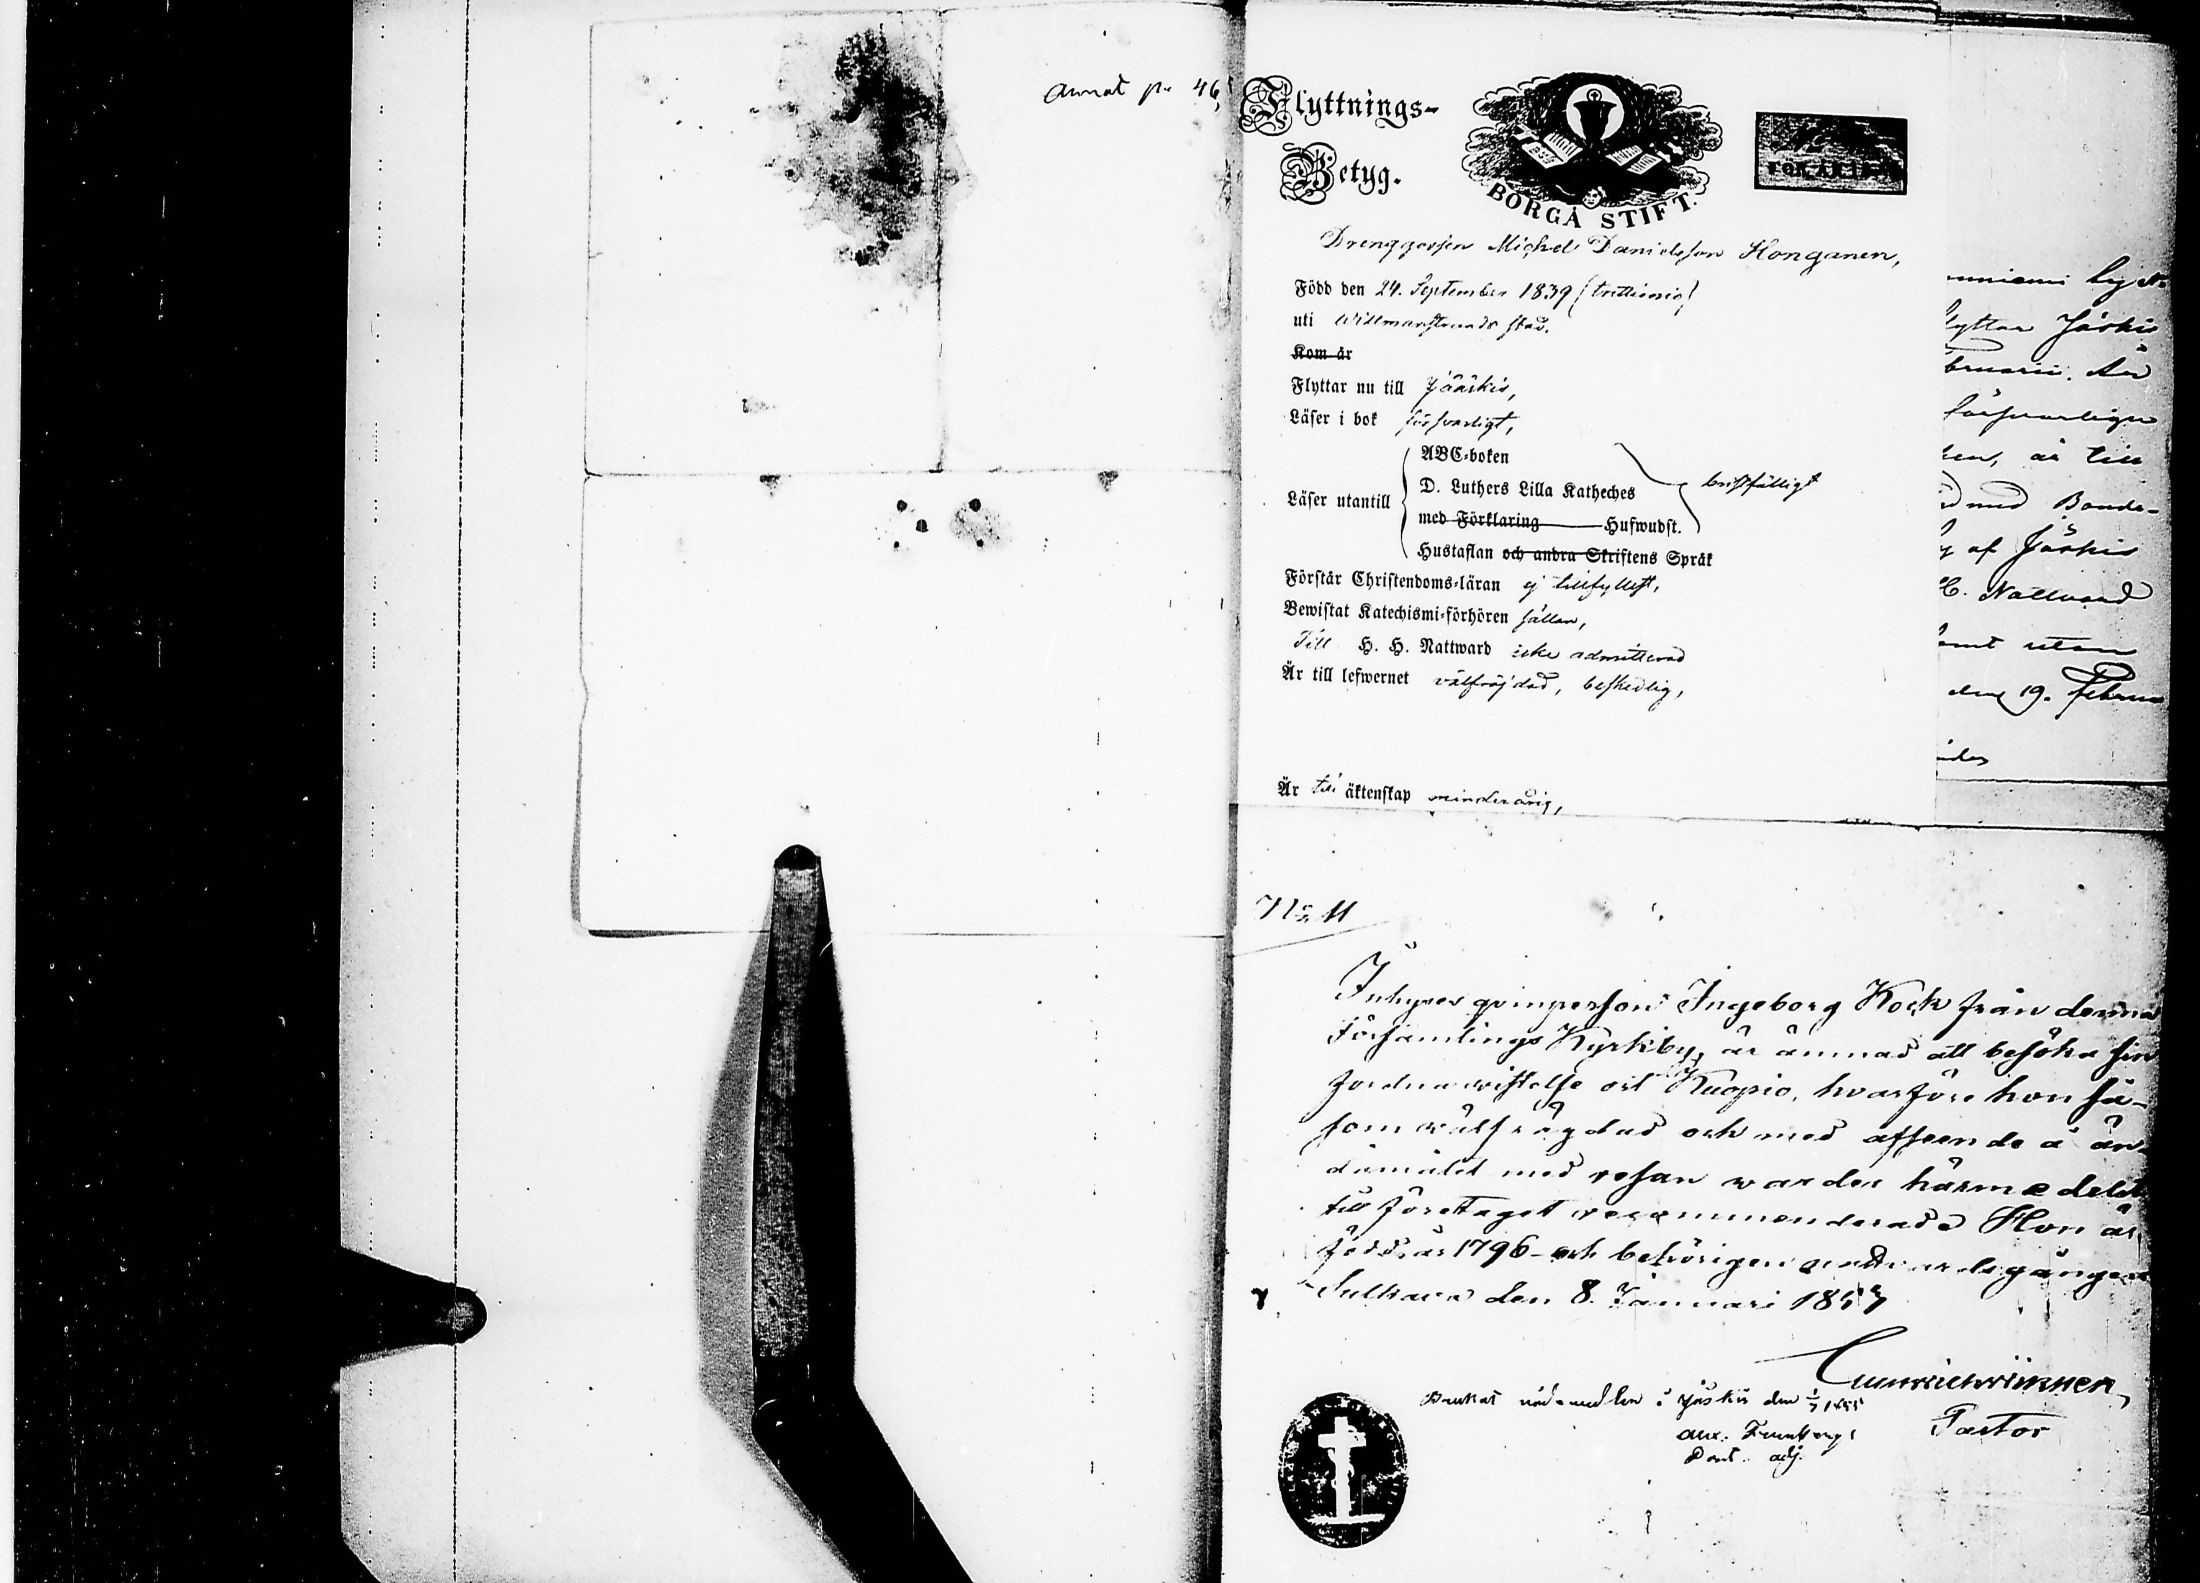 Annat pr 46,
Flyttnings-
Betyg.
BORGÅ STIFT.
FÖR ÅR 18
Drenggossen Michel Danielsson Honganen,
Född den 24. September 1839 (trettinio)
uti Willmanstrands stad.
Kom år
Flyttar nu till Jääskis,
Läser i bok försvarligt,
Läser utantill
ABC-boken
D. Luthers Lilla Katheches
med Förklaring Hufwudst.
Hustaflan och andra Skriftens Språk
bristfälligt
Förstår Christendoms-läran ej tillfyllest,
Bewistat Katechismi-förhören sällan,
Till H. H. Nattward icke admitterad
Är till lefwernet välfrejdad, beskedlig,
Är till äktenskap minderårig,
lyttar Jäskis
bruarii. Är
försvarligen
ken, är till
Bonde-
af Jäskis
H. Nattvard
samt utan
den 19. Februa
No 11
Inhyses qvinperson Ingeborg Kock från denna
Församlings Kyrkby, är ämnad att besöka sin
fordna vistelse ort Kuopio, hvarföre hon så-
som wälfrägdad och med afseende å än-
damålet med resan warder härmedelst
till företaget recommenderad. Hon är
född år 1796 och behörigen nattvardsgången
Sulkava den 8. Januari 1857
Pastor
i Jäskis den
adj.